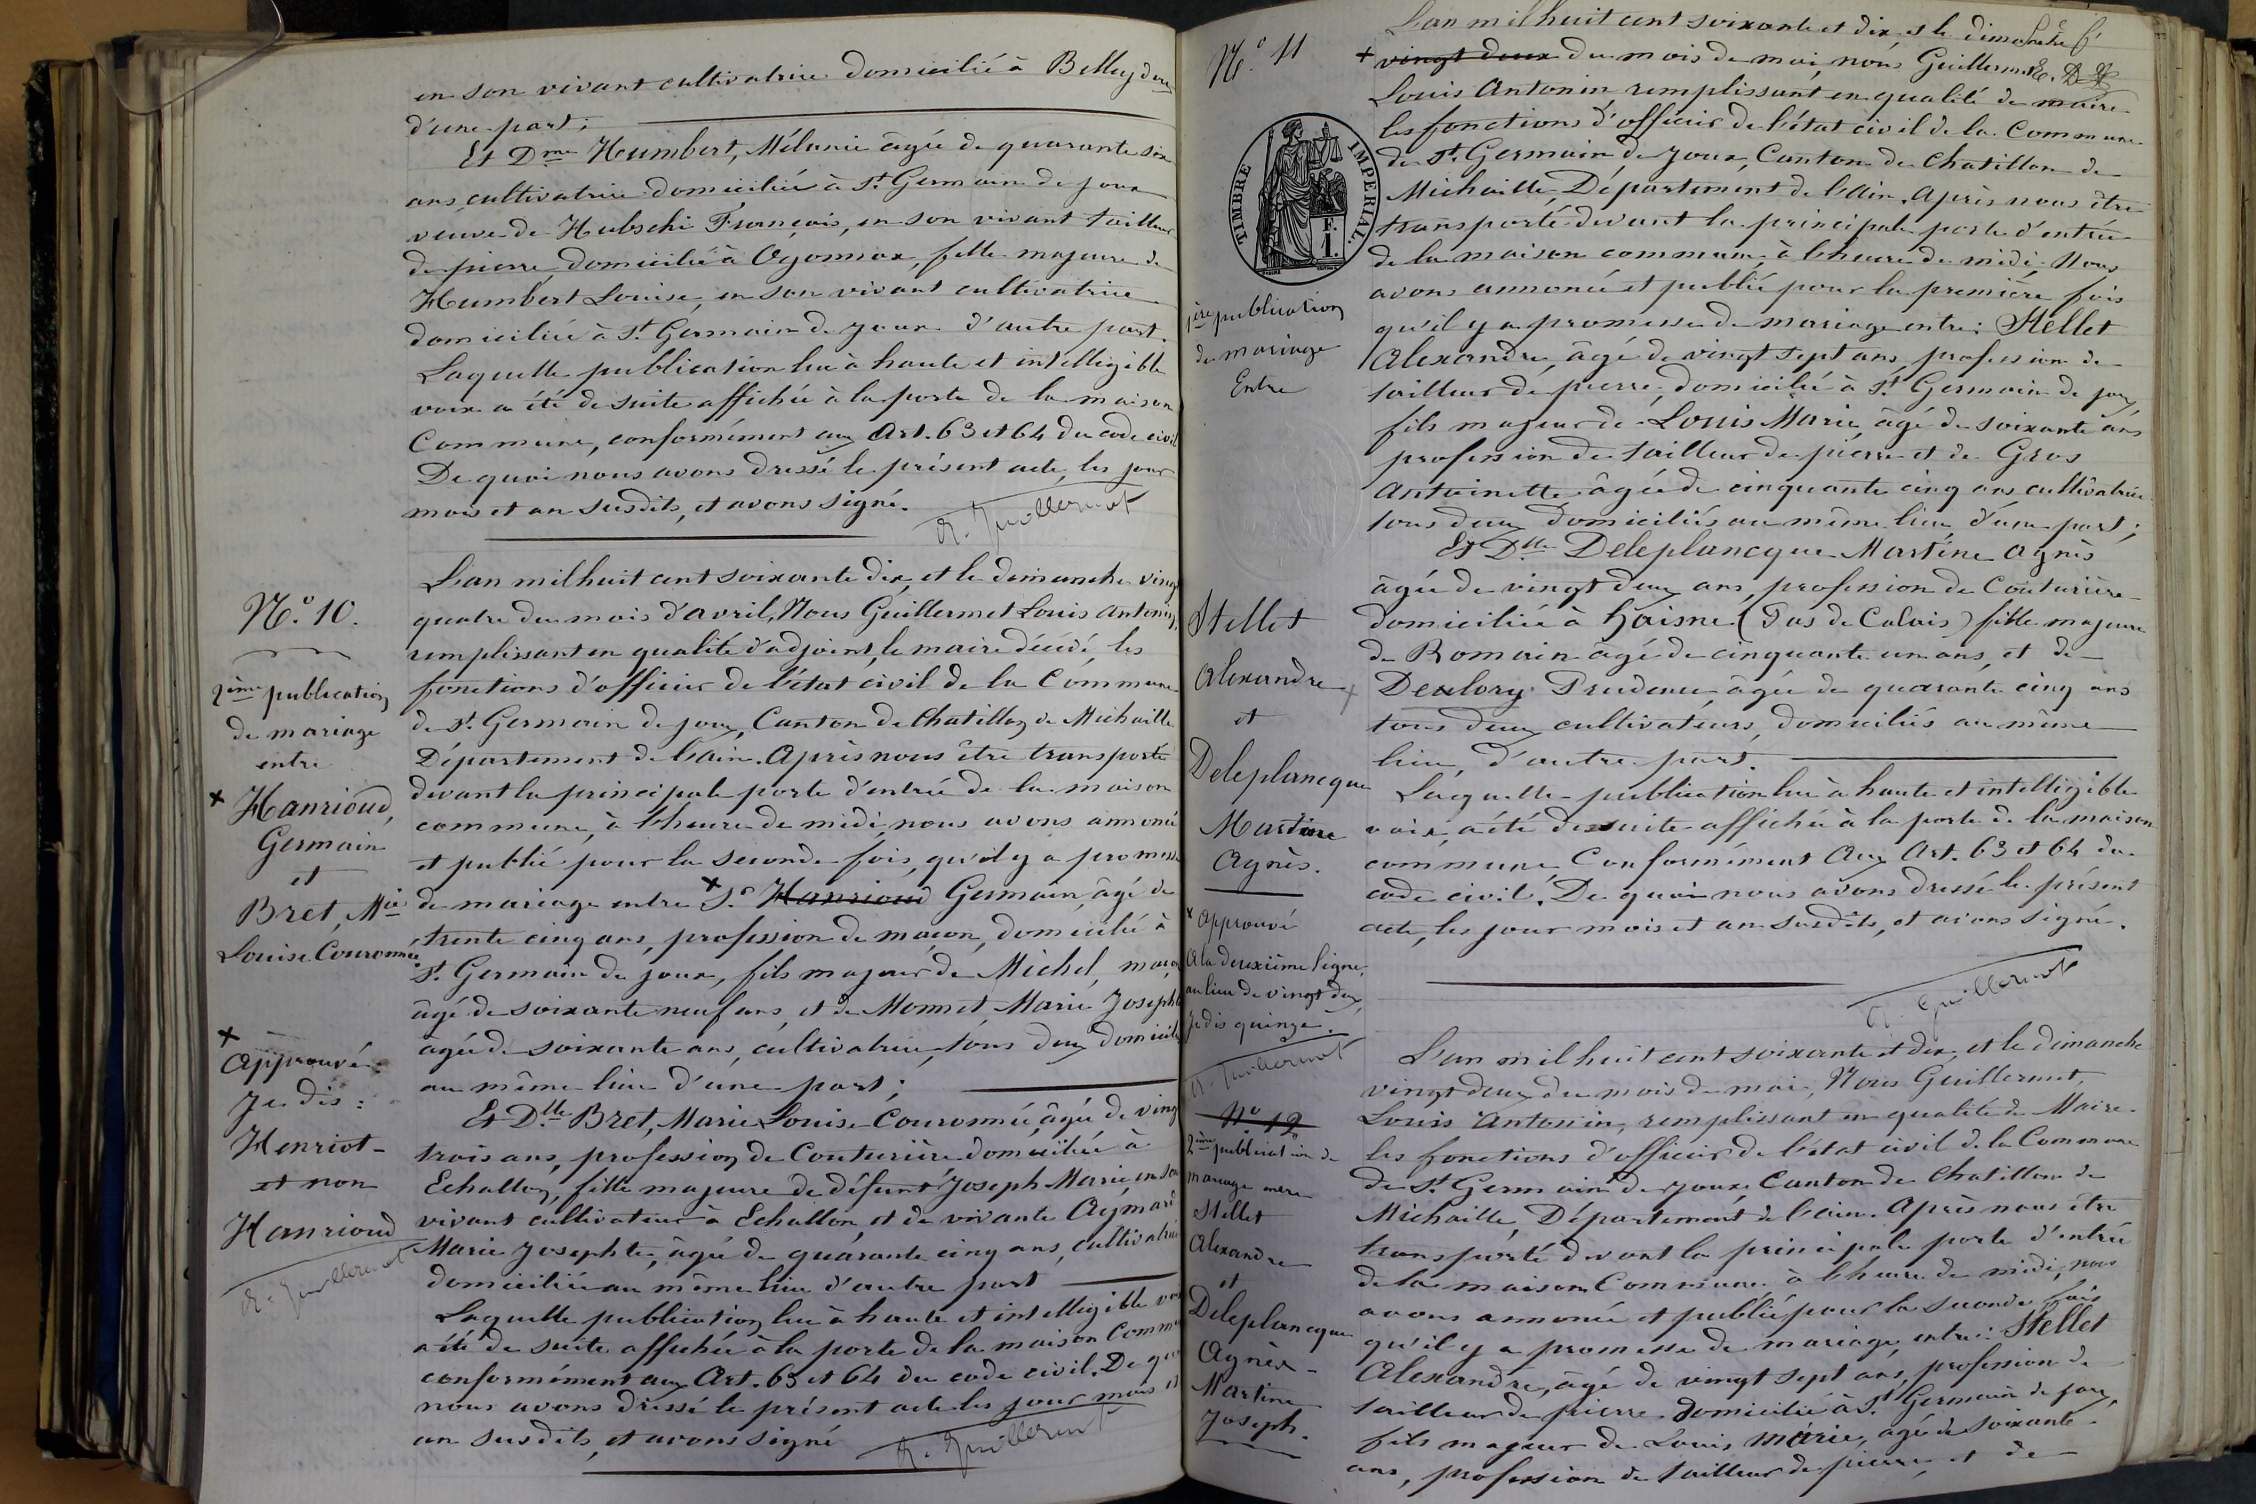 en son vivant cultivatrice domicilié à Belleydoux
d'une part;
Et Dme Humbert, Mélanie âgée de quarante six
ans cultivatrice domiciliée à St Germain de joux
veuve de Hubschi François, en son vivant tailleur
de pierre domicilié à Oyonnax, fille majeure de
Humbert Louise, en son vivant cultivatrice
domiciliée à St Germain de joux d'autre part.
Laquelle publication lue à haute et intelligible
voix a été de suite affichée à la porte de la maison
Commune, conformément aux Art. 63 et 64 du code civil
De quoi nous avons dressé le présent acte, les jour
mois et an susdits, et avons signé.
A. Guillermet
N.° 10.
2ème publication
de mariage
entre
x Hanrioud,
Germain
et
Bret, Mie
Louise Couronnée.
x
Approuvé:
Je dis:
Henriot
et non
Hanrioud
A. Guillermet
L'an mil huit cent soixante dix, et le dimanche vingt
quatre du mois d'avril, Nous Guillermet Louis Antonin,
remplissant en qualité d'adjoint, le maire décédé, les
fonctions d'officier de l'état civil de la Commune
de St Germain de joux, Canton de Chatillon de Michaille
Département de l'ain. Après nous être transporté
devant la principale porte d'entrée de la maison
commune, à l'heure de midi, nous avons annoncé
et publié pour la seconde fois, qu'il y a promesse
de mariage entre x S.r Hanrioud Germain, âgé de
trente cinq ans, profession de maçon, domicilié à
St Germain de joux, fils majeur de Michel, maçon
âgé de soixante neuf ans, et de Monnet, Marie Josephte
âgée de soixante ans, cultivatrice, tous deux domiciliés
au même lieu d'une part;
Et Dlle Bret, Marie Louise Couronnée, âgée de vingt
trois ans, profession de Couturière domiciliée à
Echallon, fille majeure de défunt Joseph Marie, en son
vivant cultivateur à Echallon, et de vivante Aymard
Marie Josephte, âgée de quarante cinq ans, cultivatrice
domiciliée au même lieu d'autre part
Laquelle publication lue à haute et intelligible voix
a été de suite affichée à la porte de la maison Commune
conformément aux Art. 63 et 64 du code civil. De quoi
nous avons dressé le présent acte les jour mois et
an susdits, et avons signé
A. Guillermet
N.° 11
TIMBRE IMPERIAL.
F.
1.
1ère publication
de mariage
Entre
Stellet
Alexandre
et
Deleplancque
Martine
Agnès.
x approuvé
A la deuxième ligne,
au lieu de vingt deux,
je dis quinze.
A. Guillermet
L'an mil huit cent soixante et dix, et le dimanche
x vingt deux du mois de mai, nous Guillermet
Louis Antonin remplissant en qualité de maire
les fonctions d'officier de l'état civil de la Commune
de St Germain de Joux, Canton de Chatillon de
Michaille, Département de l'ain. Après nous être
transporté devant la principale porte d'entrée
de la maison commune à l'heure de midi. Nous
avons annoncé et publié pour la première fois
qu'il y a promesse de mariage entre: Stellet
Alexandre, âgé de vingt sept ans, profession de
tailleur de pierre, domicilié à St Germain de joux,
fils majeur de Louis Marie, âgé de soixante ans
profession de tailleur de pierre et de Gros
Antoinette âgée de cinquante cinq ans cultivatrice
tous deux domiciliés au même lieu, d'une part;
Et Dlle Deleplancque Martine Agnès
âgée de vingt deux ans, profession de Couturière
domiciliée à haisne (Pas de Calais) fille majeure
de Romain âgé de cinquante un ans, et de
Prudence, âgée de quarante cinq ans
tous deux cultivateurs, domiciliés au même
lieu, d'autre part.
Laquelle publication lue à haute et intelligible
voix, a été de suite affichée à la porte de la maison
commune, Conformément Aux Art. 63 et 64 du
code civil. De quoi nous avons dressé le présent
acte, les jour mois et an susdits, et avons signé.
A. Guillermet
N° 12
2ème publication de
mariage entre
Stellet
Alexandre
et
Deleplancque
Agnès
Martine
Joseph.
L'an mil huit cent soixante et dix, et le dimanche
vingt deux du mois de mai, Nous Guillermet,
Louis Antonin, remplissant en qualité de Maire
les fonctions d'officier de l'état civil de la Commune
de St Germain de joux Canton de Chatillon de
Michaille, Département de l'ain. Après nous être
transporté devant la principale porte d'entrée
de la maison Commune à l'heure de midi, nous
avons annoncé et publié pour la seconde fois
qu'il y a promesse de mariage, entre: Stellet
Alexandre, âgé de vingt sept ans, profession de
tailleur de pierre domicilié à St Germain de joux,
fils majeur de Louis Marie, âgé de soixante
ans, profession de tailleur de pierre, et de